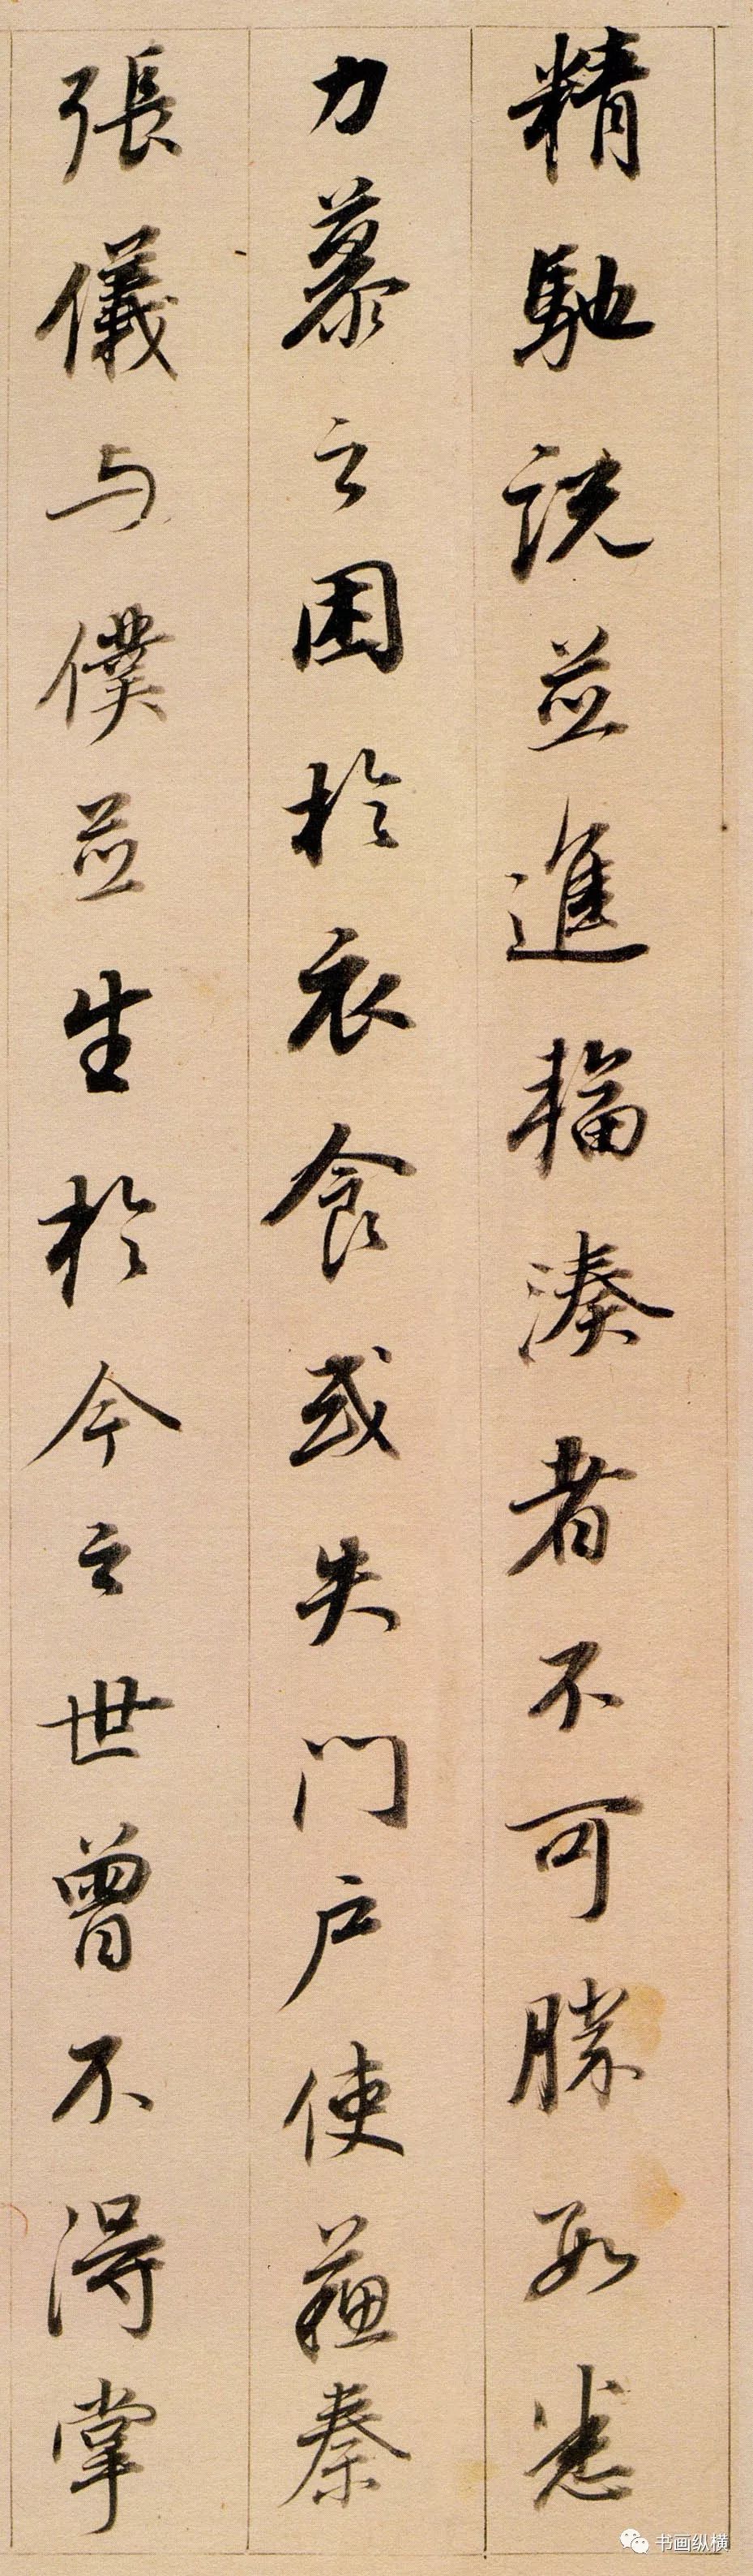 精馳說並進輻湊者不可勝數悉
力慕之困於衣食或失門戶使蘇秦
張儀与僕並生於今之世曾不得掌
书画纵横